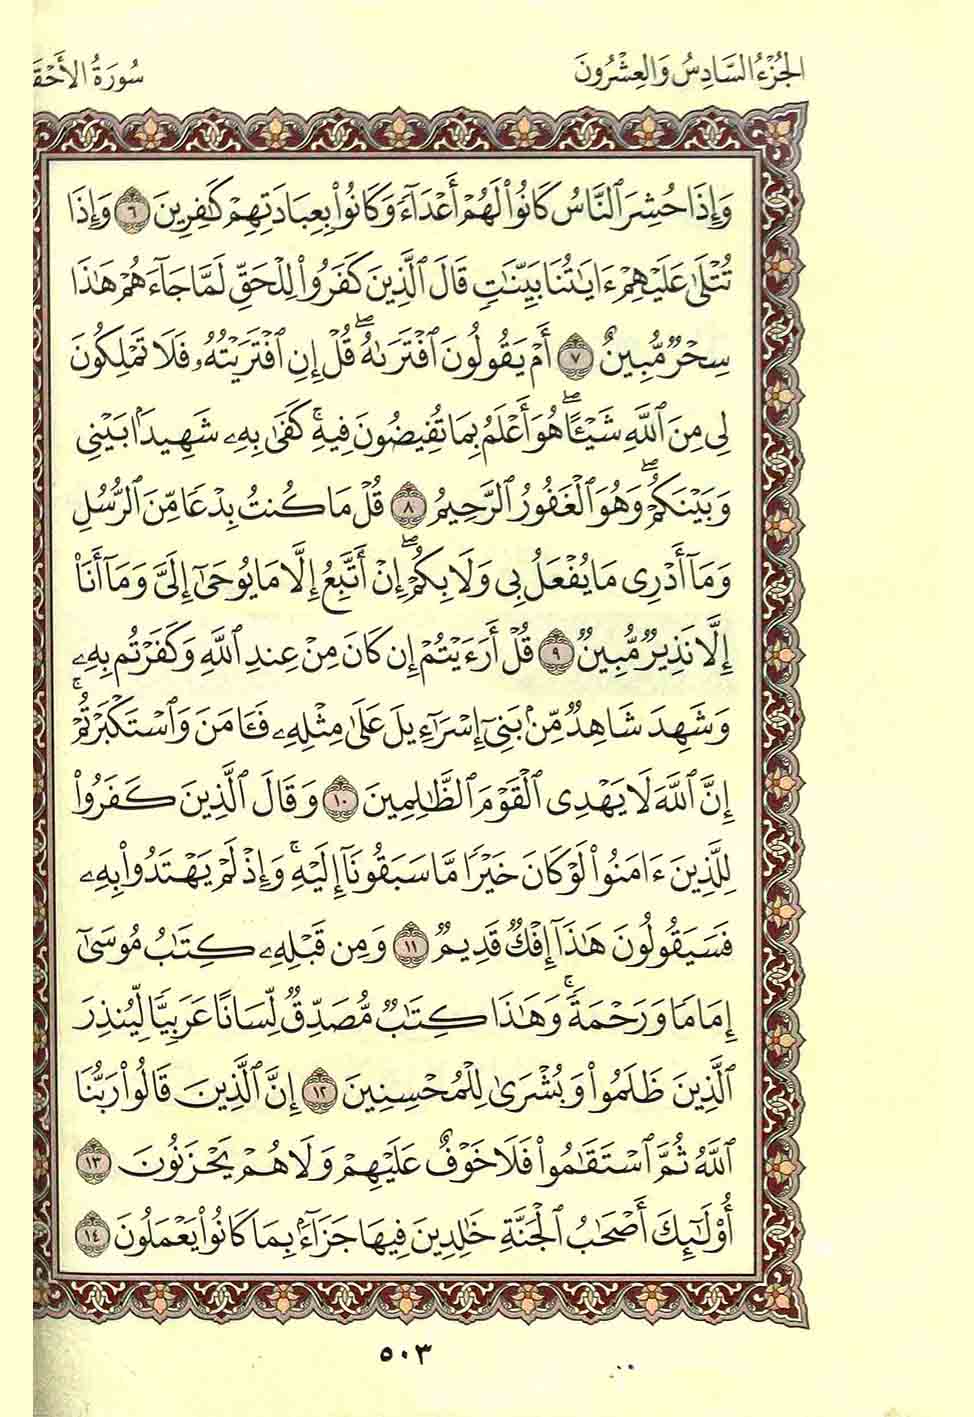 الجُزْءُ السَّادِسُ وَالعِشْرُونَ
سُورَةُ الأَحْقَ
وَإِذَا حُشِرَ ٱلنَّاسُ كَانُوا۟ لَهُمْ أَعْدَآءً وَكَانُوا۟ بِعِبَادَتِهِمْ كَٰفِرِينَ ٦ وَإِذَا
تُتْلَىٰ عَلَيْهِمْ ءَايَٰتُنَا بَيِّنَٰتٍ قَالَ ٱلَّذِينَ كَفَرُوا۟ لِلْحَقِّ لَمَّا جَآءَهُمْ هَٰذَا
سِحْرٌ مُّبِينٌ ٧ أَمْ يَقُولُونَ ٱفْتَرَىٰهُ ۖ قُلْ إِنِ ٱفْتَرَيْتُهُۥ فَلَا تَمْلِكُونَ
لِى مِنَ ٱللَّهِ شَيْـًٔا ۖ هُوَ أَعْلَمُ بِمَا تُفِيضُونَ فِيهِ ۚ كَفَىٰ بِهِۦ شَهِيدًۢا بَيْنِى
وَبَيْنَكُمْ ۖ وَهُوَ ٱلْغَفُورُ ٱلرَّحِيمُ ٨ قُلْ مَا كُنتُ بِدْعًا مِّنَ ٱلرُّسُلِ
وَمَآ أَدْرِى مَا يُفْعَلُ بِى وَلَا بِكُمْ ۖ إِنْ أَتَّبِعُ إِلَّا مَا يُوحَىٰٓ إِلَىَّ وَمَآ أَنَا۠
إِلَّا نَذِيرٌ مُّبِينٌ ٩ قُلْ أَرَءَيْتُمْ إِن كَانَ مِنْ عِندِ ٱللَّهِ وَكَفَرْتُم بِهِۦ
وَشَهِدَ شَاهِدٌ مِّنۢ بَنِىٓ إِسْرَٰٓءِيلَ عَلَىٰ مِثْلِهِۦ فَـَٔامَنَ وَٱسْتَكْبَرْتُمْ ۚ
إِنَّ ٱللَّهَ لَا يَهْدِى ٱلْقَوْمَ ٱلظَّٰلِمِينَ ١٠ وَقَالَ ٱلَّذِينَ كَفَرُوا۟
لِلَّذِينَ ءَامَنُوا۟ لَوْ كَانَ خَيْرًا مَّا سَبَقُونَآ إِلَيْهِ ۚ وَإِذْ لَمْ يَهْتَدُوا۟ بِهِۦ
فَسَيَقُولُونَ هَٰذَآ إِفْكٌ قَدِيمٌ ١١ وَمِن قَبْلِهِۦ كِتَٰبُ مُوسَىٰٓ
إِمَامًا وَرَحْمَةً ۚ وَهَٰذَا كِتَٰبٌ مُّصَدِّقٌ لِّسَانًا عَرَبِيًّا لِّيُنذِرَ
ٱلَّذِينَ ظَلَمُوا۟ وَبُشْرَىٰ لِلْمُحْسِنِينَ ١٢ إِنَّ ٱلَّذِينَ قَالُوا۟ رَبُّنَا
ٱللَّهُ ثُمَّ ٱسْتَقَٰمُوا۟ فَلَا خَوْفٌ عَلَيْهِمْ وَلَا هُمْ يَحْزَنُونَ ١٣
أُو۟لَٰٓئِكَ أَصْحَٰبُ ٱلْجَنَّةِ خَٰلِدِينَ فِيهَا جَزَآءًۢ بِمَا كَانُوا۟ يَعْمَلُونَ ١٤
٥٠٣